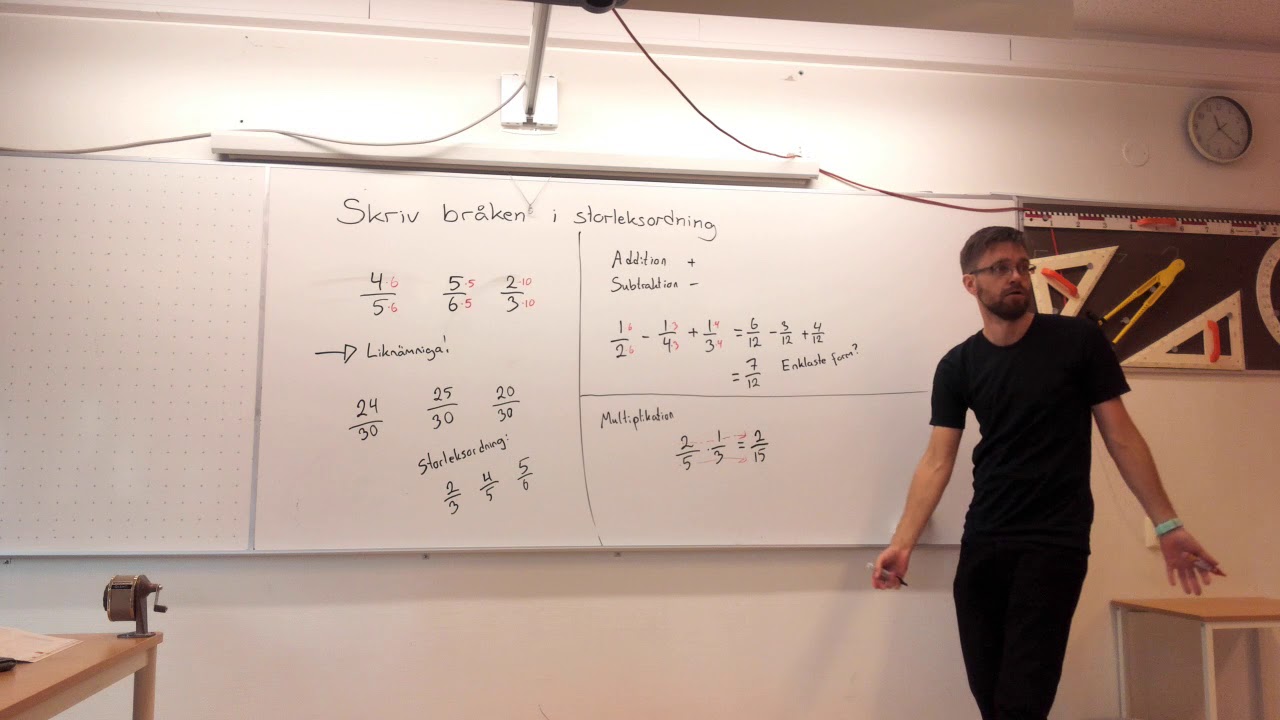 Skriv bråken i storleksordning
4·6/5·6 5·5/6·5 2·10/3·10
→ Liknämniga!
24/30 25/30 20/30
Storleksordning:
2/3 4/5 5/6
Addition +
Subtraktion -
1·6/2·6 - 1·3/4·3 + 1·4/3·4 = 6/12 - 3/12 + 4/12
= 7/12 Enklaste form?
Multiplikation
2/5 · 1/3 = 2/15